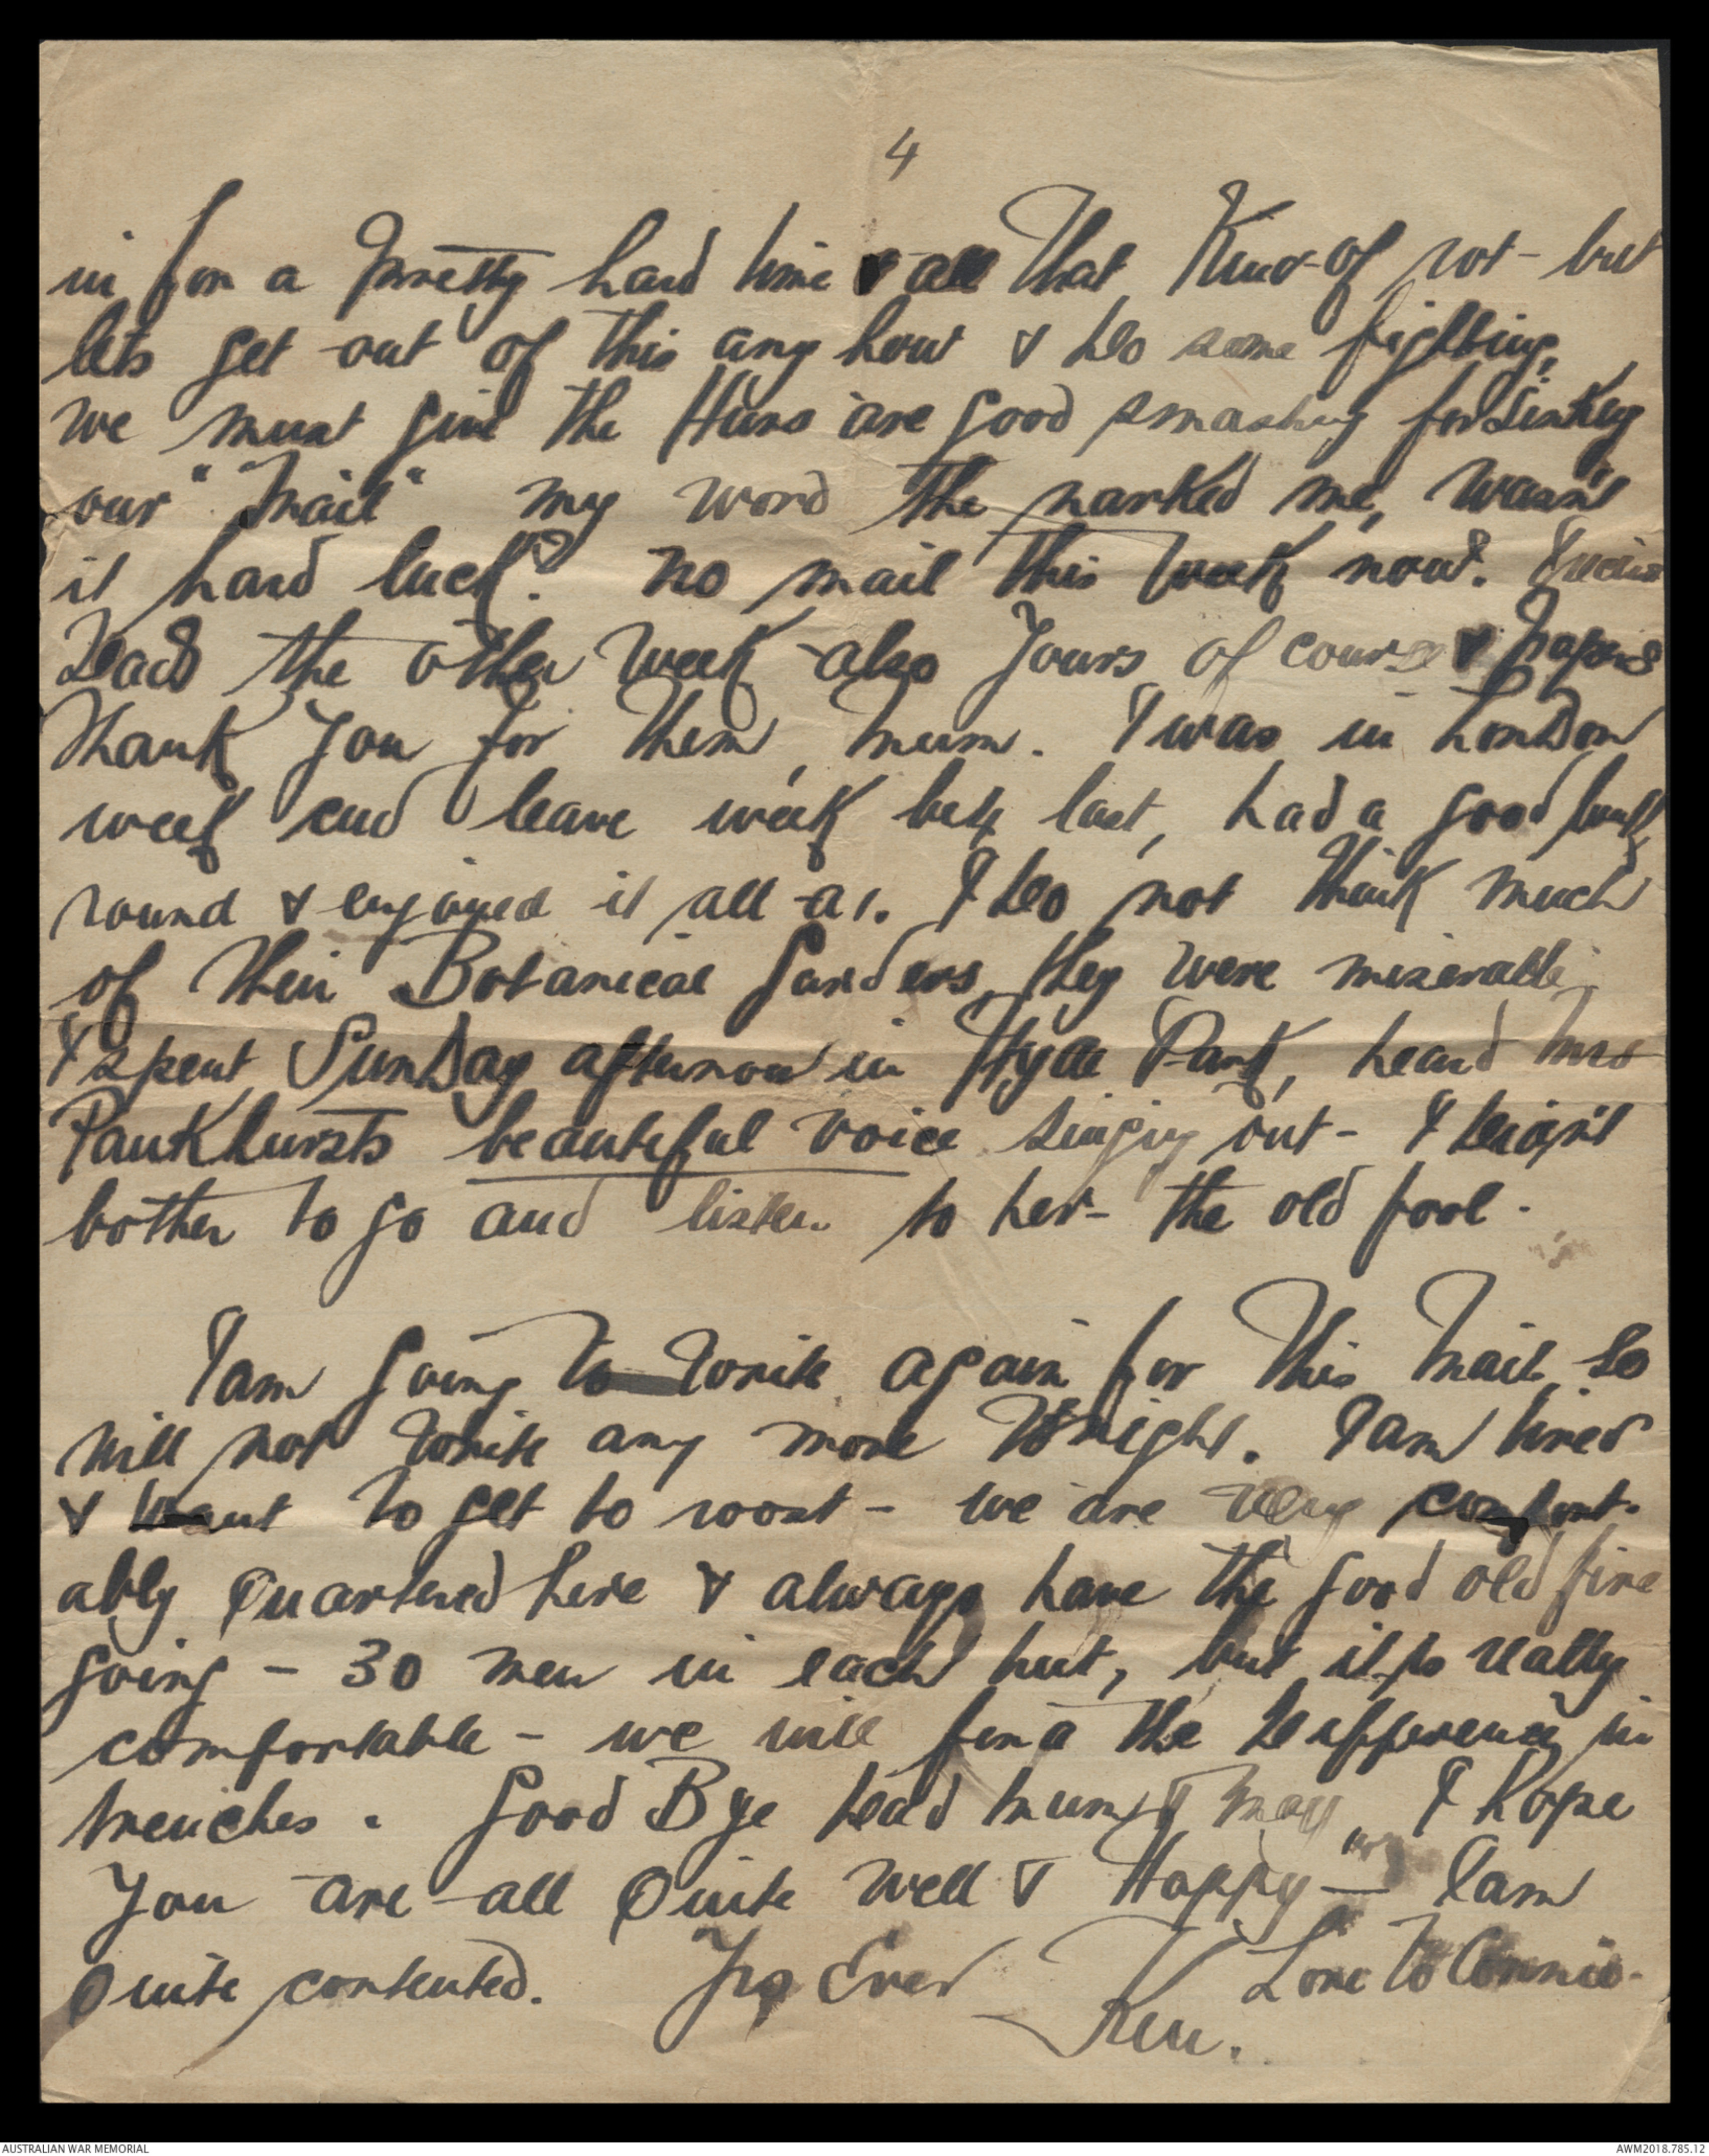 4
in for a pretty hard time & all that kind of rot - but
lets get out of this any how & do some fighting,
we must give the Huns are good smashing for sinking
our "Mail" my word the narked me, wasn't
it hard luck? No mail this week now.
Dads the other week also yours of course & papers
thank you for them, Mum. I was in London
week end leave week bef last, had a good look
round & enjoyed it all A1. I do not think much
of their Botanical Gardens, they were miserable,
I spent Sunday afternoon in Hyde Park, heard Mrs
Pankhursts beautiful voice singing out - I didn't
bother to go and listen to her - the old fool.
I am going to write again for this mail so
will not write any more tonight. I am tired
& want to get to roost - we are very comfort-
ably quartered here & always have the good old fire
going - 30 men in each hut, but it is really
comfortable - we will find the difference in
trenches. Good Bye dead mum & may, I hope
you are all quite well & Happy - I am
quite contented. Yrs Ever Love to Connie.
Ken.
AUSTRALIAN WAR MEMORIAL
AWM2018.785.12